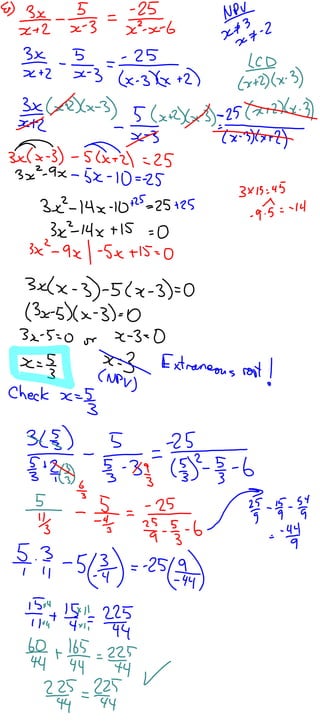 e) 3x/(x+2) - 5/(x-3) = -25/(x²-x-6)
NPV
x≠3
x≠-2
3x/(x+2) - 5/(x-3) = -25/((x-3)(x+2))
LCD
(x+2)(x-3)
3x/(x+2) (x+2)(x-3) - 5/(x-3) (x+2)(x-3) = -25/((x-3)(x+2)) (x+2)(x-3)
3x(x-3) - 5(x+2) = 25
3x²-9x - 5x - 10 = -25
3x15=45
-9·5=-14
3x²-14x-10 +25 = 25 +25
3x²-14x+15 = 0
3x²-9x | -5x+15=0
3x(x-3)-5(x-3)=0
(3x-5)(x-3)=0
3x-5=0 or x-3=0
x=5/3 x=3 Extraneous root!
(NPV)
Check x=5/3
3(5/3)/(5/3 + 2/1 (3/3)) 6/3 - 5/(5/3 - 3 9/3) = -25/((5/3)² - 5/3 - 6)
5/(11/3) - 5/(-4/3) = -25/(25/9 - 5/3 - 6)
25/9 - 15/9 - 54/9
= -44/9
5/1 · 3/11 - 5(3/-4) = -25(9/-44)
15 ×4/11 ×4 + 15 ×11/4 ×11 = 225/44
60/44 + 165/44 = 225/44
225/44 = 225/44 ✓